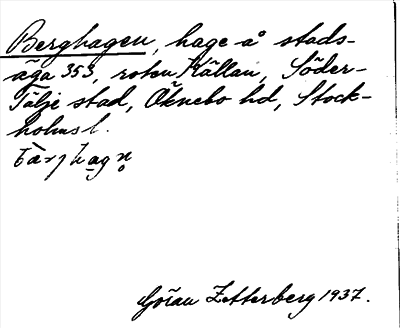 Berghagen, hage å stads-
äga 353, roten Källan, Söder-
Tälje stad, Öknebo hd, Stock-
holms l.
bàrjhagn̥
Göran Zetterberg 1937.